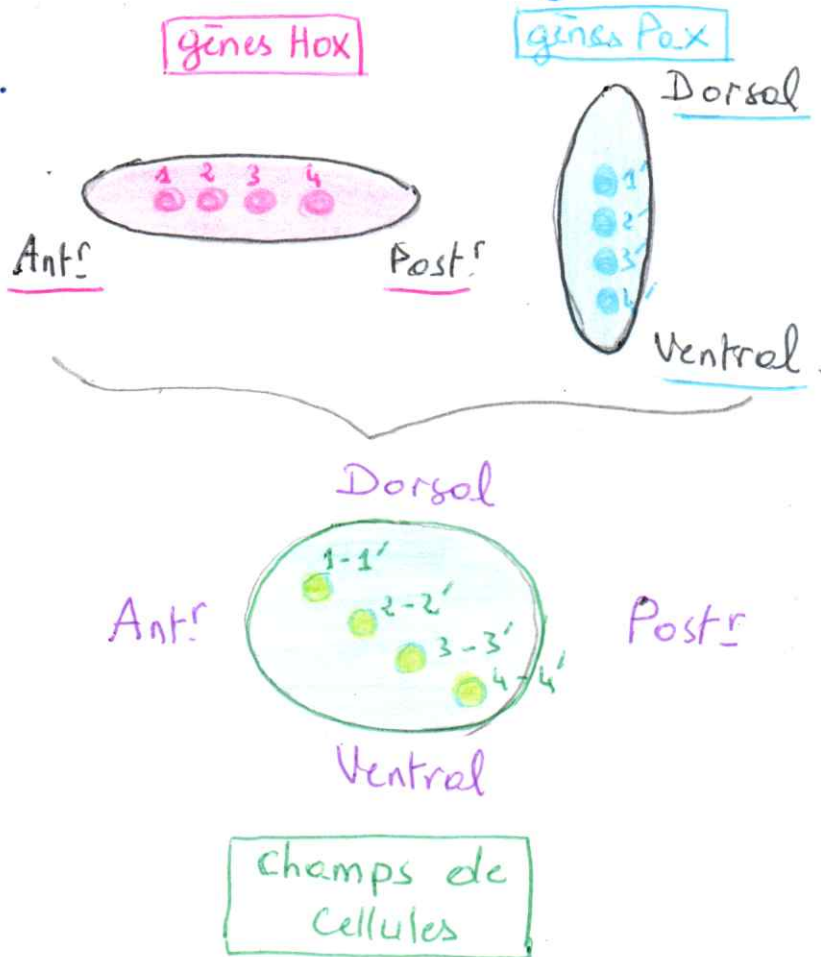 gènes Hox
gènes Pax
Dorsal
1 2 3 4
1'
2'
3'
4'
Antʳ
Postʳ
Ventral
Dorsal
1-1'
2-2'
Antʳ
Postʳ
3-3'
4-4'
Ventral
Champs de
Cellules